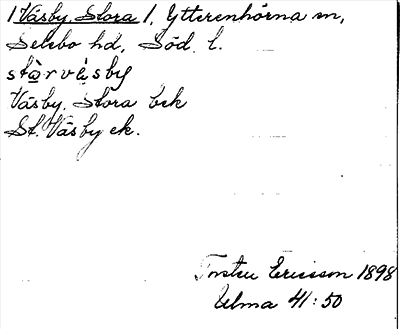 /Väsby, Stora/, Ytterenhörna sn,
Selebo hd, Söd. l.
stò̱rvè̱sby
Väsby, Stora bek
St. Väsby ek.
Torsten Ericsson 1898
Ulma 41:50